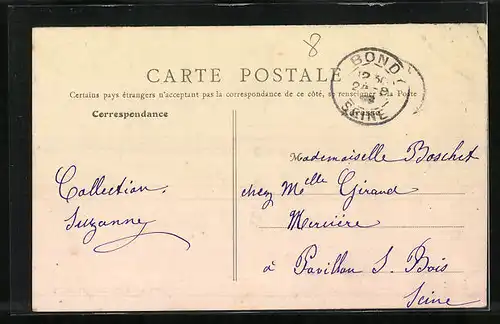 8
BOND
SEINE
CARTE POSTALE
Certains pays étrangers n'acceptant pas la correspondance de ce côté, se renseigner à la Poste
Correspondance
Collection.
Suzanne
Mademoiselle Boschet
chez Melle Giraud
Mercière
à Pavillon S. Bois
Seine